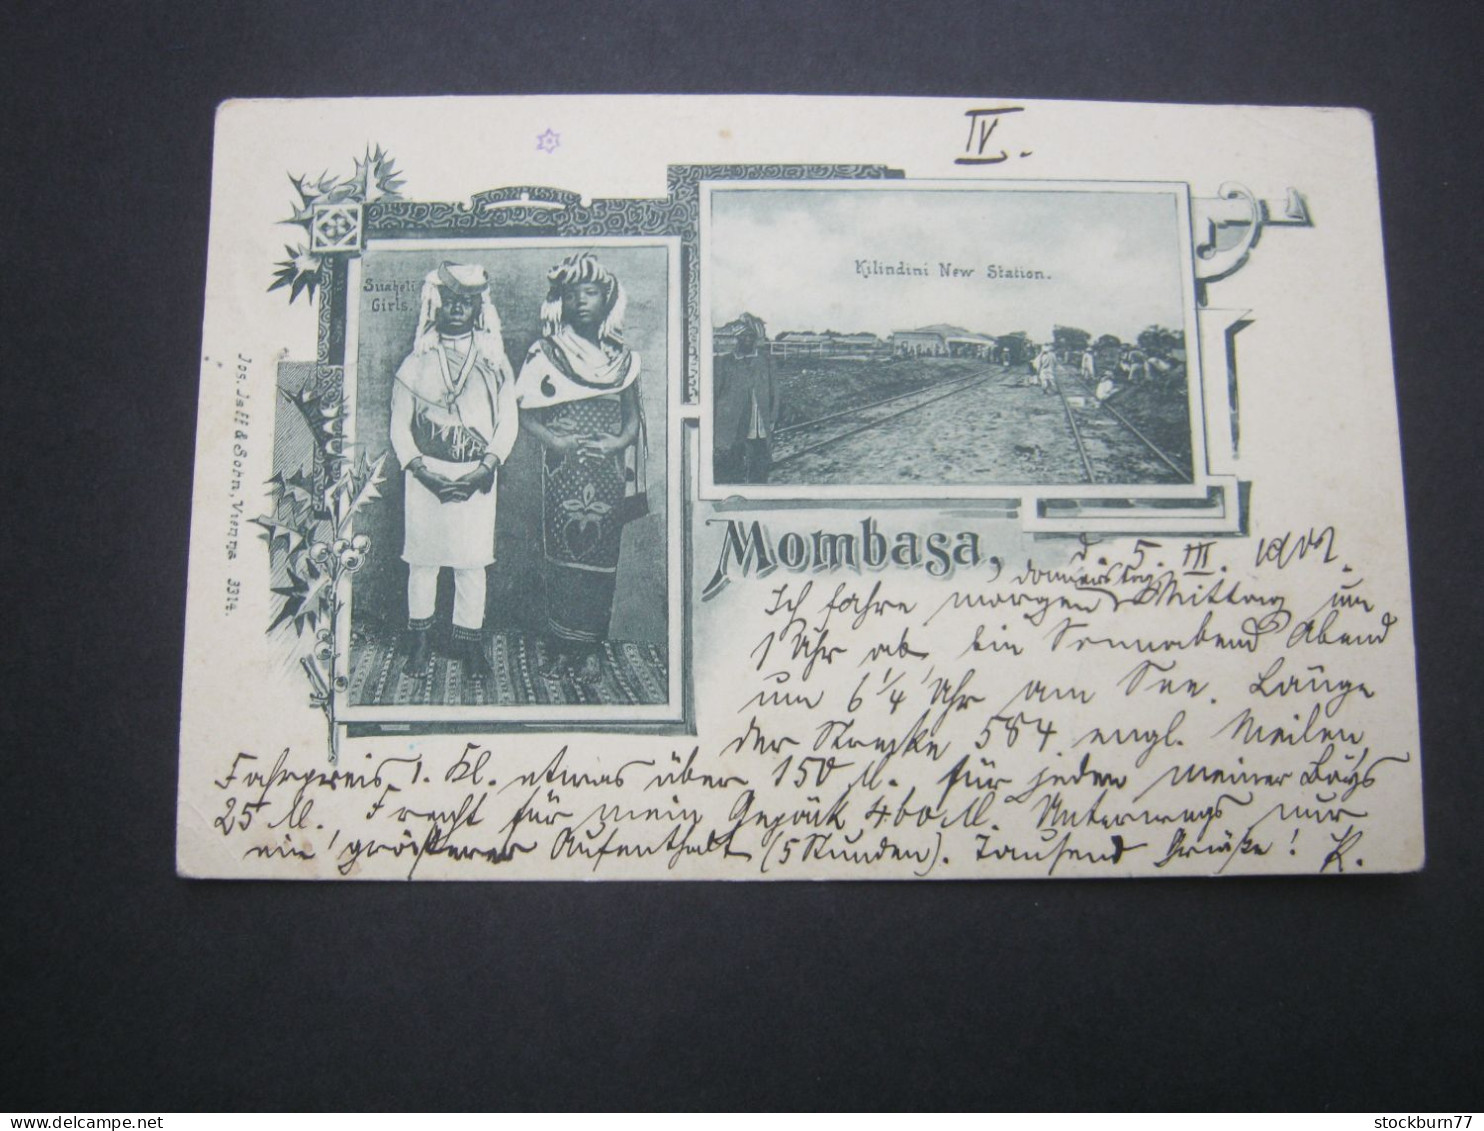 IV.
Kilindini New Station.
Suaheli
Girls.
Jos. Jaff & Sohn, Vienna 3314.
Mombasa,
d. 5. III. 1902.
Ich fahre morgen Donnerstag Mittag um
1 Uhr ab, bin Sonnabend Abend
um 6 1/4 Uhr am See. Länge
der Strecke 584 engl. Meilen
Fahrpreis 1. Kl. etwas über 150 M. für jeden meiner Boys
25 M. Fracht für mein Gepäck 460 M. Unterwegs nur
ein größerer Aufenthalt (5 Stunden). Tausend Grüße! K.
stockburn77